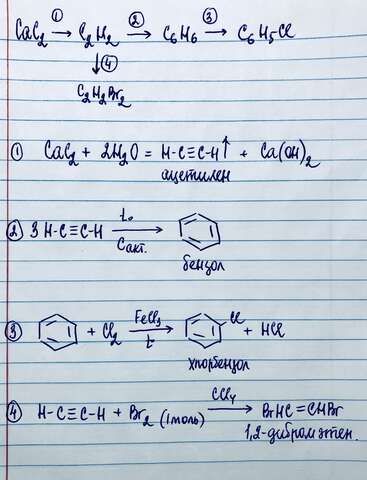 CaC₂ ①→ C₂H₂ ②→ C₆H₆ ③→ C₆H₅Cl
↓④
C₂H₂Br₂
① CaC₂ + 2H₂O = H-C≡C-H↑ + Ca(OH)₂
ацетилен
② 3 H-C≡C-H t° → C акт.
бензол
③ + Cl₂ FeCl₃ → t Cl + HCl
хлорбензол
④ H-C≡C-H + Br₂ (1 моль) CCl₄ → BrHC=CHBr
1,2-дибромэтен.